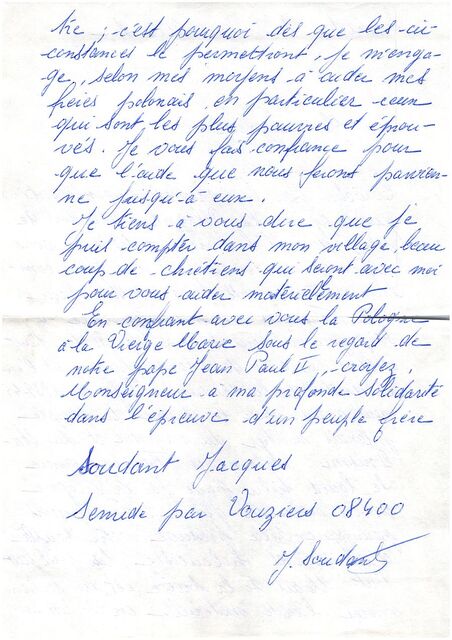 tre ; c'est pourquoi dès que les cir
constances le permettront, je m'enga-
ge, selon mes moyens à aider mes
frères polonais, en particulier ceux
qui sont les plus pauvres et éprou-
vés. Je vous fais confiance pour
que l'aide que nous ferons parvien-
ne jusqu'à eux.
Je tiens à vous dire que je
puis compter dans mon village beau
coup de chrétiens qui seront avec moi
pour vous aider matériellement
En confiant avec vous la Pologne
à la Vierge Marie sous le regard de
notre pape Jean Paul II, croyez,
Monseigneur à ma profonde solidarité
dans l'épreuve d'un peuple frère
Soudant Jacques
Semide par Vouziers 08400
J. Soudant